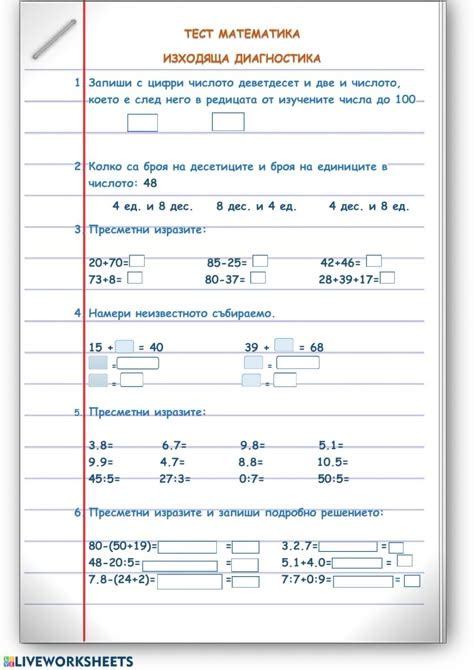 ТЕСТ МАТЕМАТИКА
ИЗХОДЯЩА ДИАГНОСТИКА
1 Запиши с цифри числото деветдесет и две и числото,
което е след него в редицата от изучените числа до 100
2 Колко са броя на десетиците и броя на единиците в
числото: 48
4 ед. и 8 дес. 8 дес. и 4 ед. 4 дес. и 8 ед.
3 Пресметни изразите:
20+70= 85-25= 42+46=
73+8= 80-37= 28+39+17=
4 Намери неизвестното събираемо.
15 + = 40 39 + = 68
= =
= =
5. Пресметни изразите:
3.8= 6.7= 9.8= 5.1=
9.9= 4.7= 8.8= 10.5=
45:5= 27:3= 0:7= 50:5=
6 Пресметни изразите и запиши подробно решението:
80-(50+19)= = 3.2.7= =
48-20:5= = 5.1+4.0= =
7.8-(24+2)= = 7:7+0:9= =
LIVEWORKSHEETS